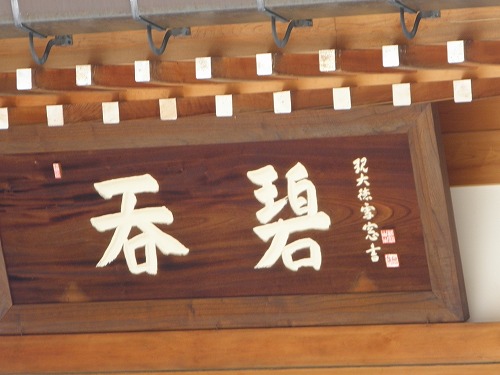 呑碧
現大徳雪窓書